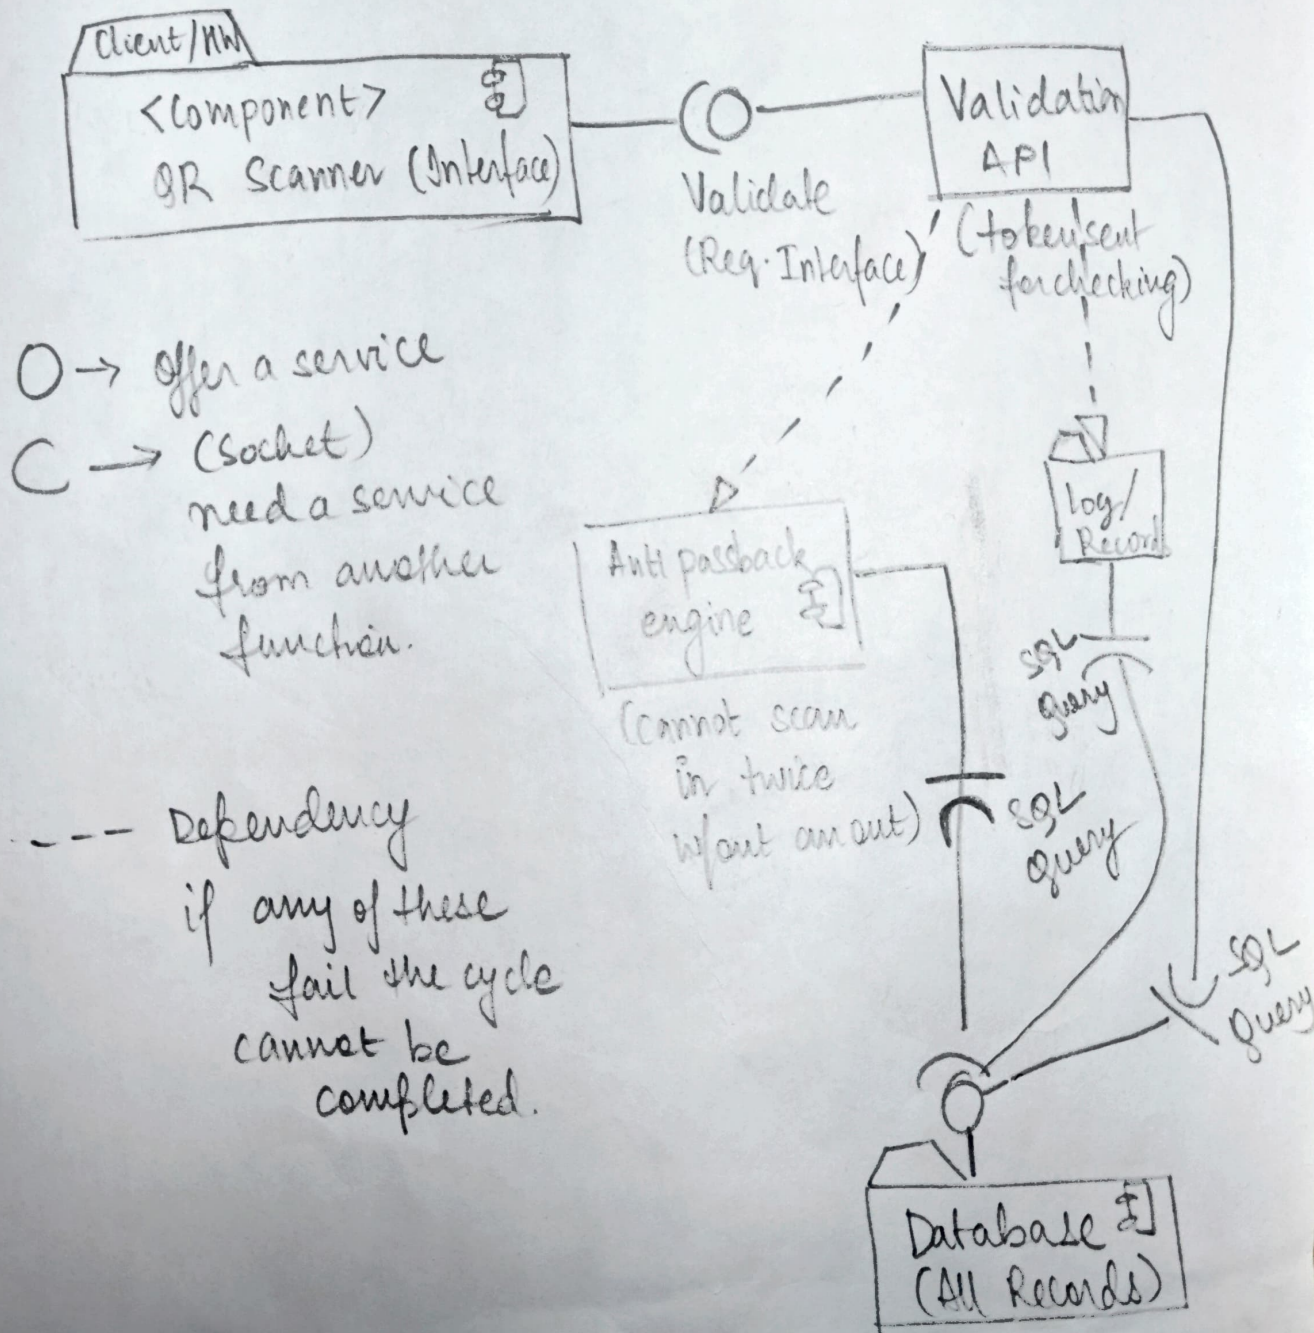 Client/HW
<Component>
QR Scanner (Interface)
Validate
(Req. Interface)
Validation
API
(token sent
for checking)
O → Offer a service
C → (Socket)
need a service
from another
function.
Log/
Records
Anti passback
engine
(Cannot scan
in twice
w/out an out)
SQL
Query
SQL
Query
SQL
Query
--- Dependency
if any of these
fail the cycle
cannot be
completed.
Database
(All Records)